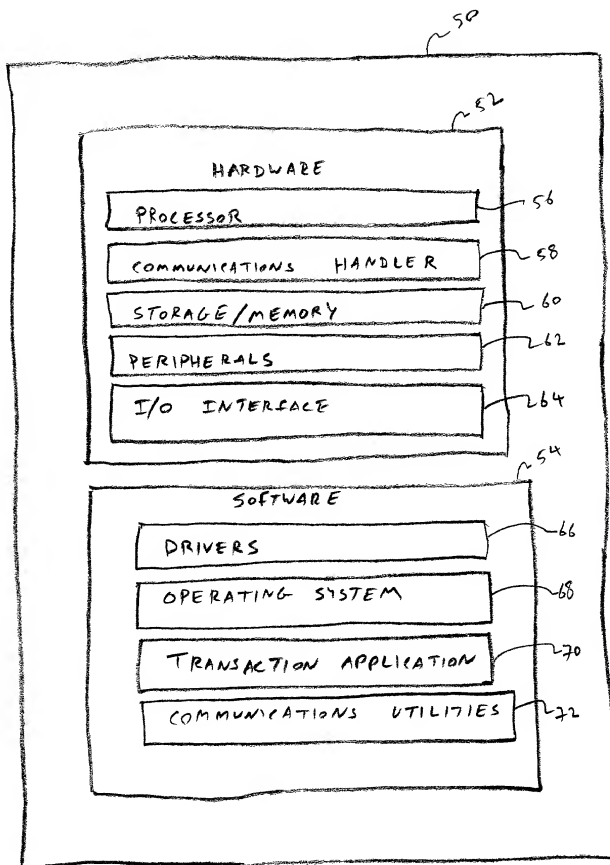 50
52
HARDWARE
PROCESSOR 56
COMMUNICATIONS HANDLER 58
STORAGE/MEMORY 60
PERIPHERALS 62
I/O INTERFACE 64
54
SOFTWARE
DRIVERS 66
OPERATING SYSTEM 68
TRANSACTION APPLICATION 70
COMMUNICATIONS UTILITIES 72